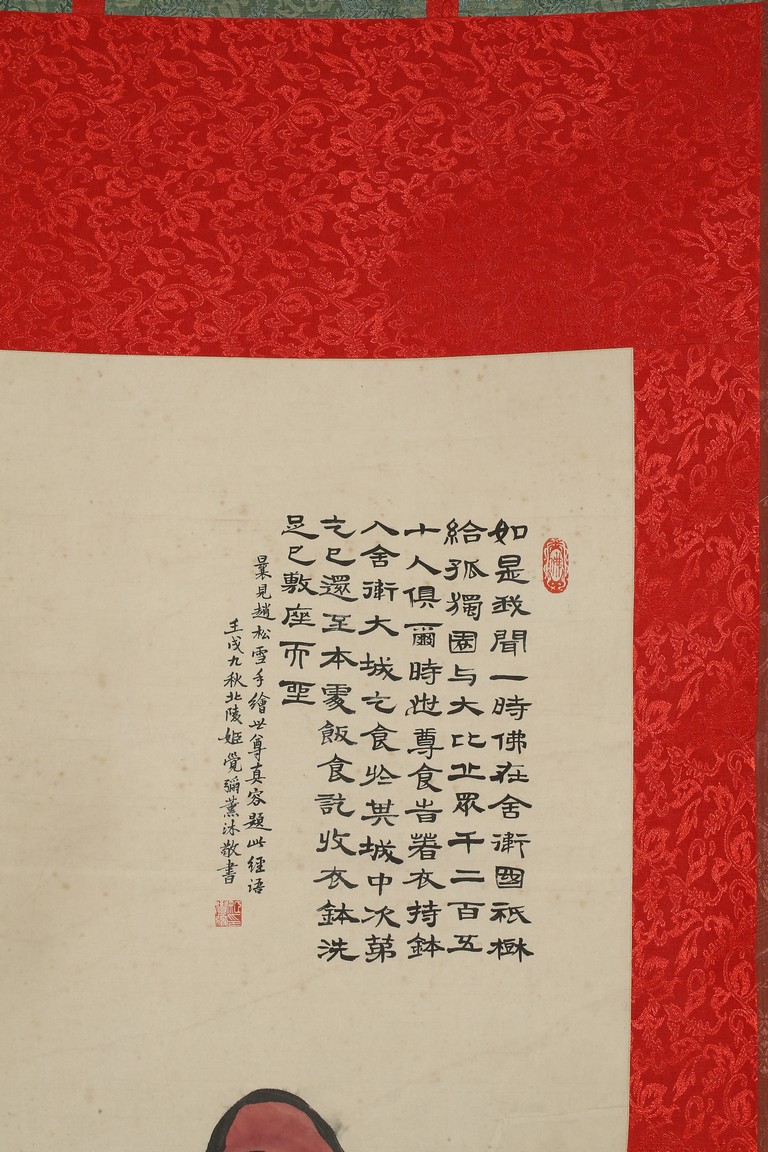 如是我聞一時佛在舍衛國祇樹
給孤獨園与大比丘眾千二百五
十人俱爾時世尊食旹著衣持鉢
入舍衛大城乞食於其城中次第
乞已還至本處飯食訖收衣鉢洗
足已敷座而坐
曩見趙松雪手繪世尊真容題此經語
壬戌九秋北陵姬覺彌薰沐敬書